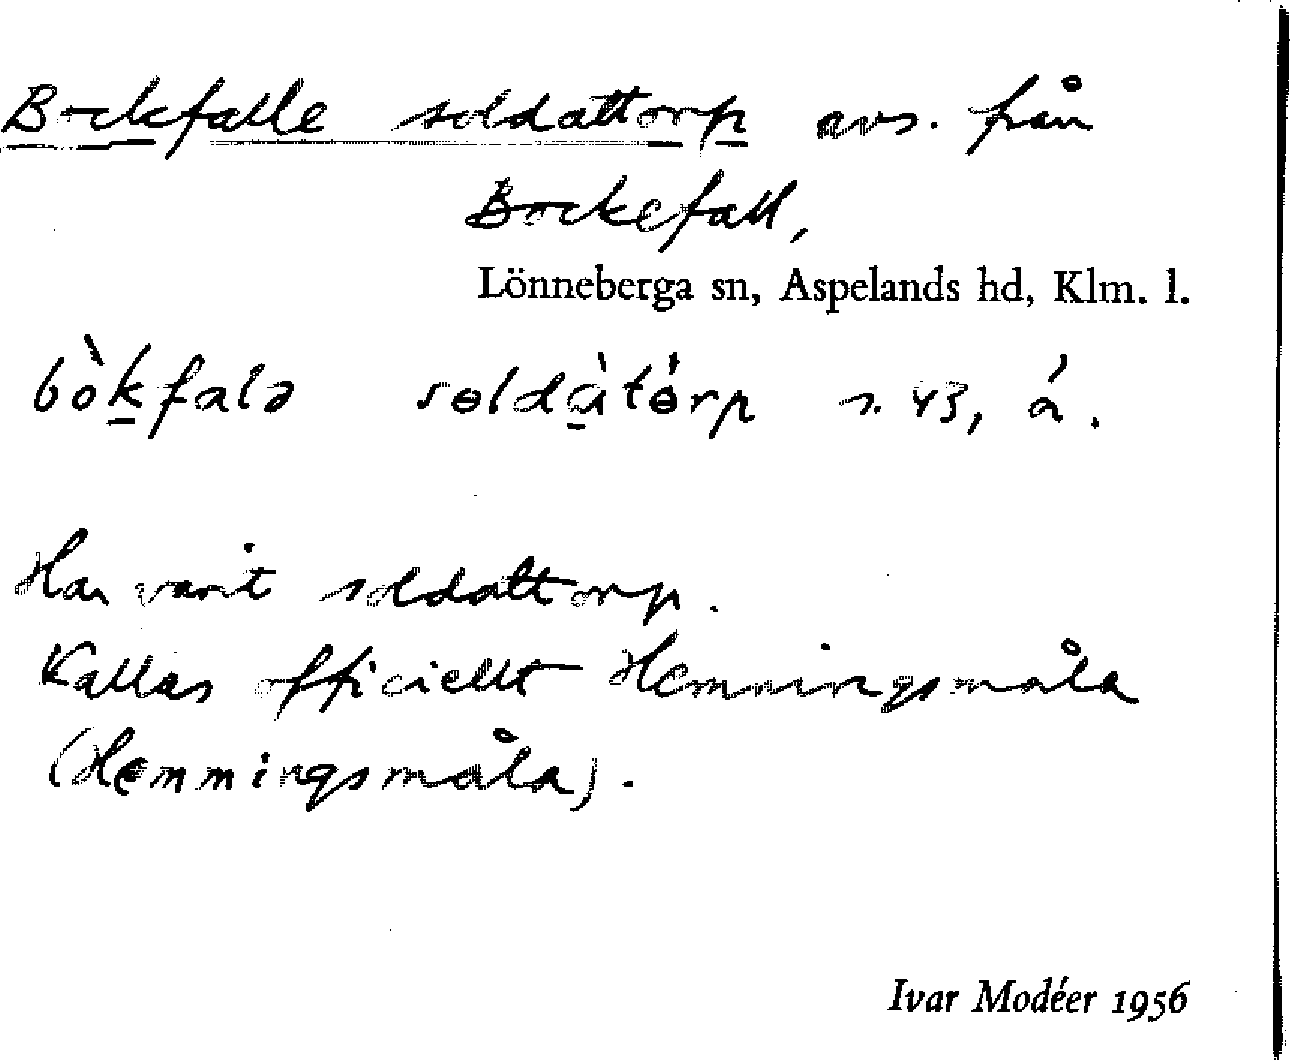 Bockfalle soldattorp avs. från
Bockefall,
Lönneberga sn, Aspelands hd, Klm. l.
bòkfalə sɵldàtɵ́rp s. 43, á.
Har varit soldattorp.
Kallas officiellt Hemmingsmåla
(Hemmingsmåla).
Ivar Modéer 1956